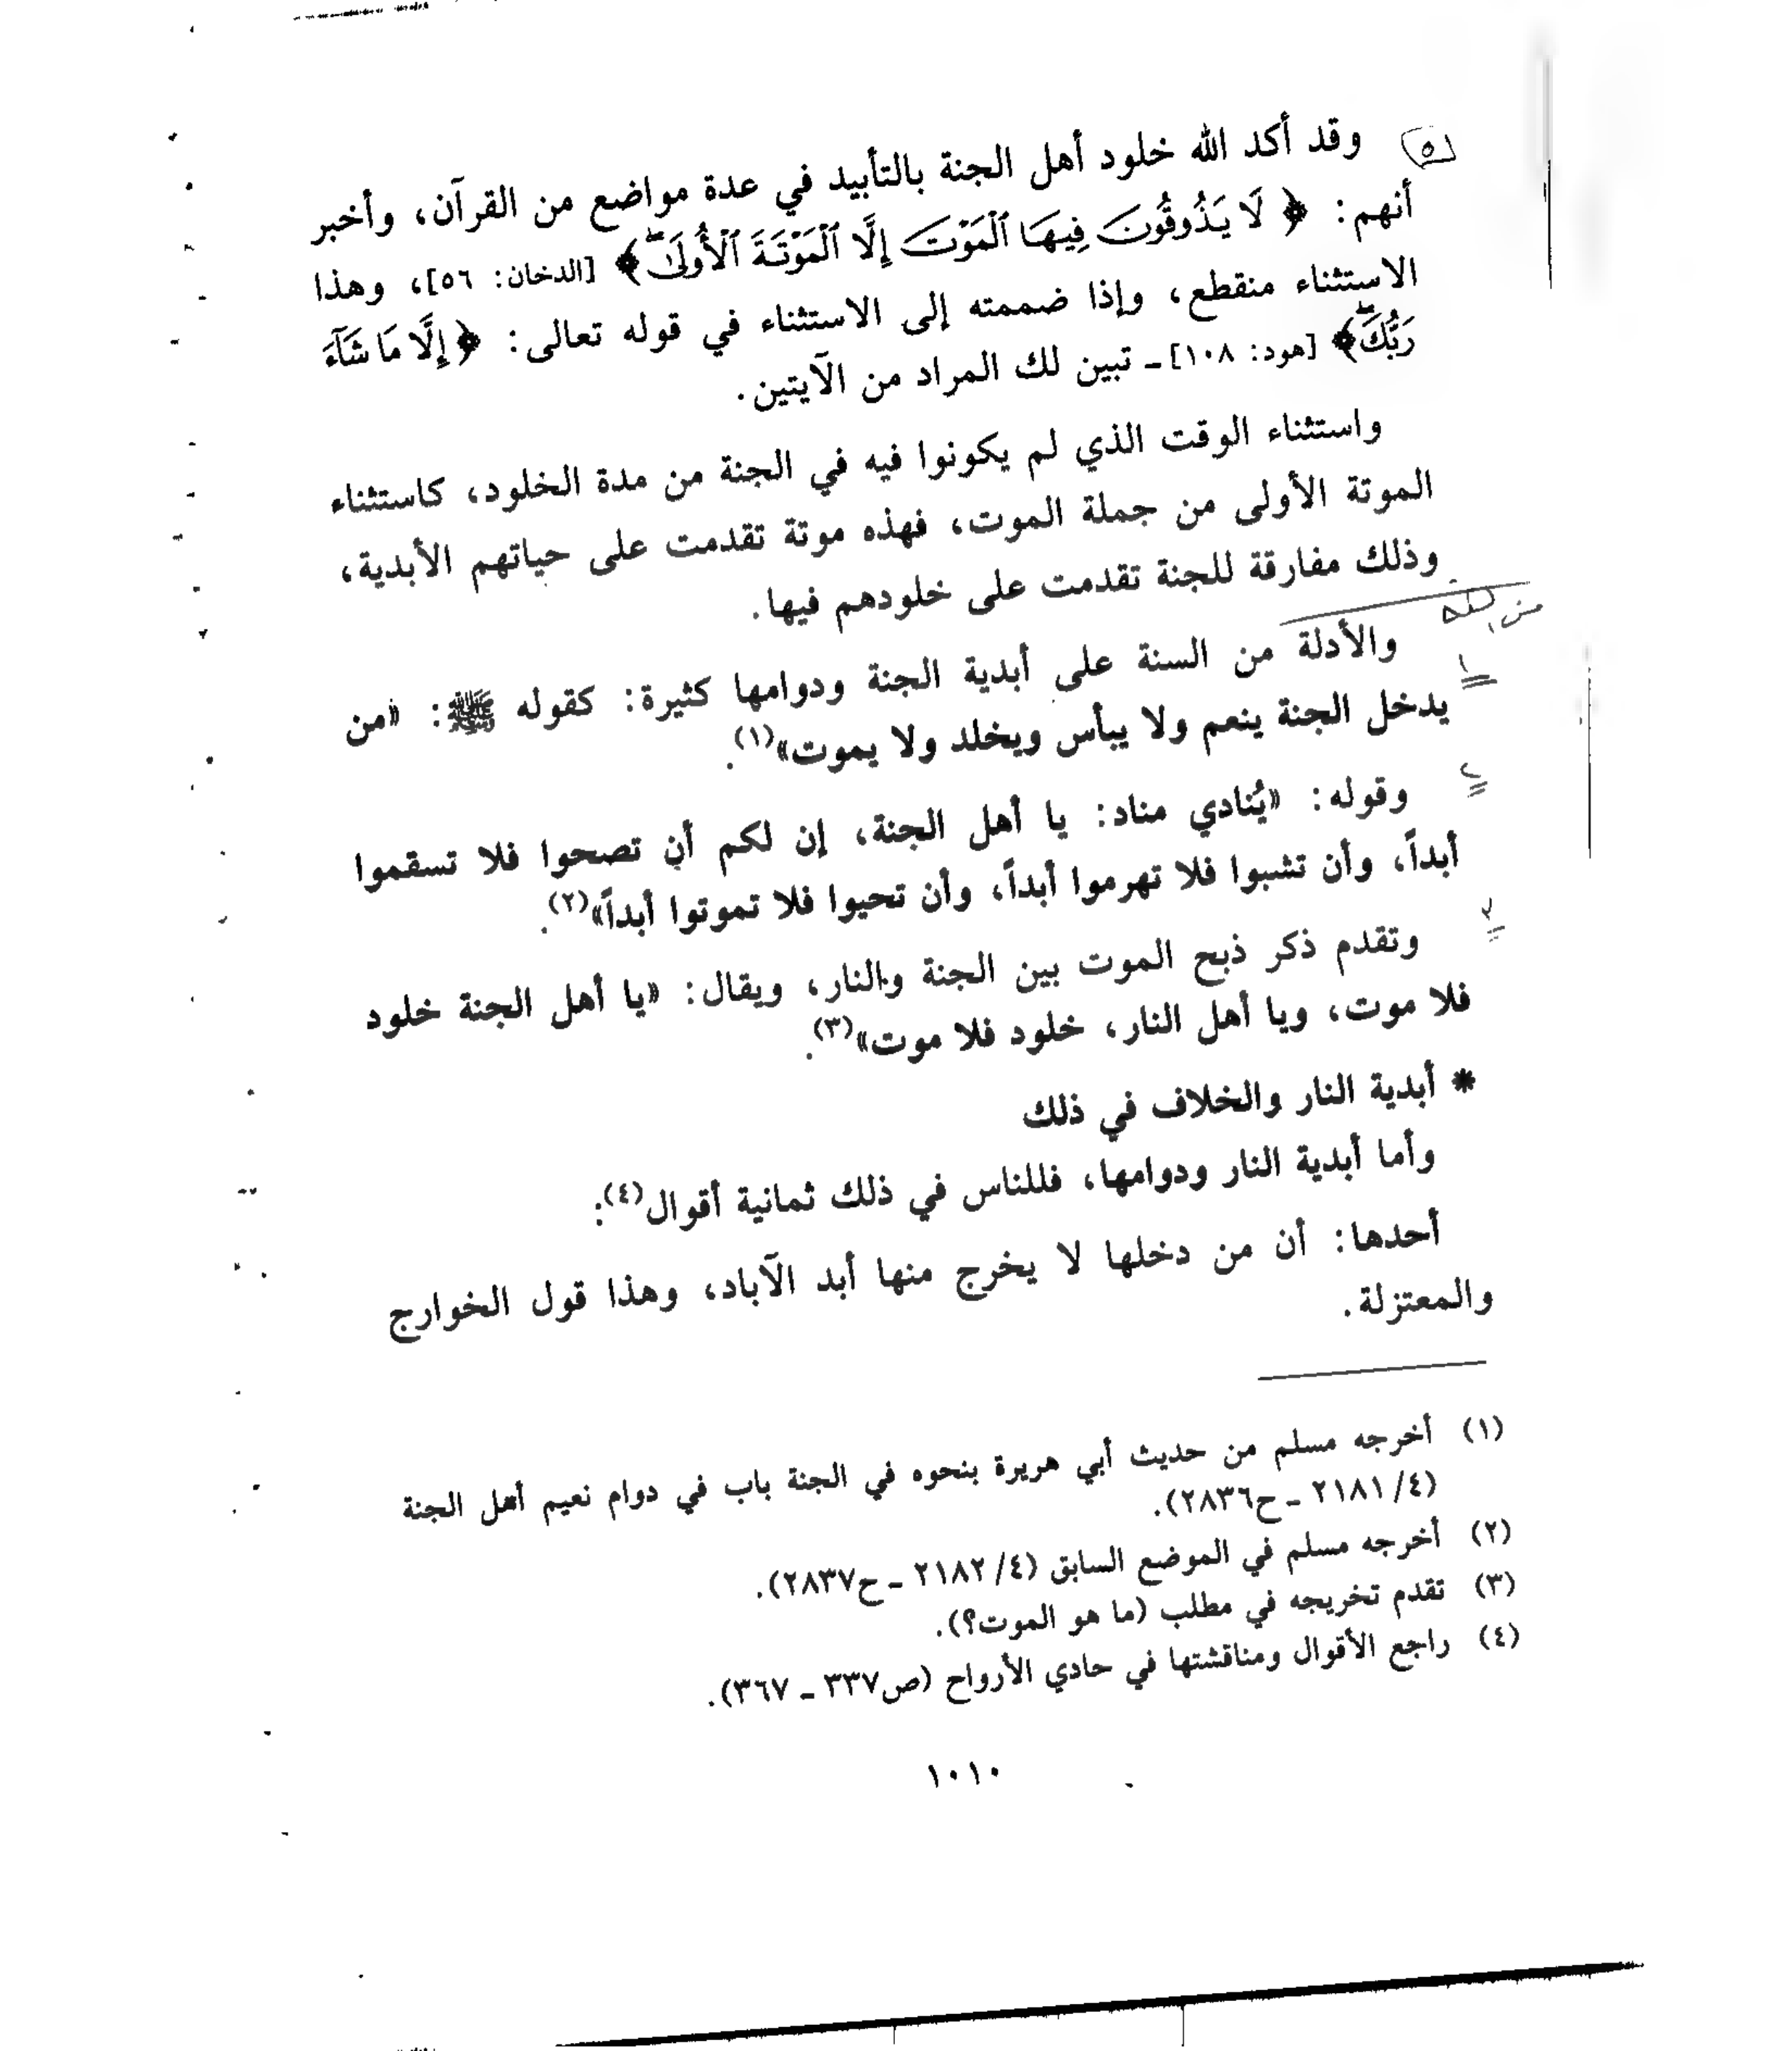 وقد أكد الله خلود أهل الجنة بالتأبيد في عدة مواضع من القرآن، وأخبر
أنهم: ﴿ لَا يَذُوقُونَ فِيهَا ٱلْمَوْتَ إِلَّا ٱلْمَوْتَةَ ٱلْأُولَىٰۖ﴾ [الدخان: ٥٦]، وهذا
الاستثناء منقطع، وإذا ضممته إلى الاستثناء في قوله تعالى: ﴿إِلَّا مَا شَآءَ
رَبُّكَۖ﴾ [هود: ١٠٨] ـ تبين لك المراد من الآيتين.
واستثناء الوقت الذي لم يكونوا فيه في الجنة من مدة الخلود، كاستثناء
الموتة الأولى من جملة الموت، فهذه موتة تقدمت على حياتهم الأبدية،
وذلك مفارقة للجنة تقدمت على خلودهم فيها.
والأدلة من السنة على أبدية الجنة ودوامها كثيرة: كقوله ﷺ: «من
يدخل الجنة ينعم ولا يبأس ويخلد ولا يموت»(١).
وقوله: «يُنادي مناد: يا أهل الجنة، إن لكم أن تصحوا فلا تسقموا
أبداً، وأن تشبوا فلا تهرموا أبداً، وأن تحيوا فلا تموتوا أبداً»(٢).
وتقدم ذكر ذبح الموت بين الجنة والنار، ويقال: «يا أهل الجنة خلود
فلا موت، ويا أهل النار، خلود فلا موت»(٣).
* أبدية النار والخلاف في ذلك
وأما أبدية النار ودوامها، فللناس في ذلك ثمانية أقوال(٤):
أحدها: أن من دخلها لا يخرج منها أبد الآباد، وهذا قول الخوارج
والمعتزلة.
(١) أخرجه مسلم من حديث أبي هريرة بنحوه في الجنة باب في دوام نعيم أهل الجنة
(٤/ ٢١٨١ ـ ح٢٨٣٦).
(٢) أخرجه مسلم في الموضع السابق (٤/ ٢١٨٢ ـ ح٢٨٣٧).
(٣) تقدم تخريجه في مطلب (ما هو الموت؟).
(٤) راجع الأقوال ومناقشتها في حادي الأرواح (ص٣٣٧ ـ ٣٦٧).
١٠١٠